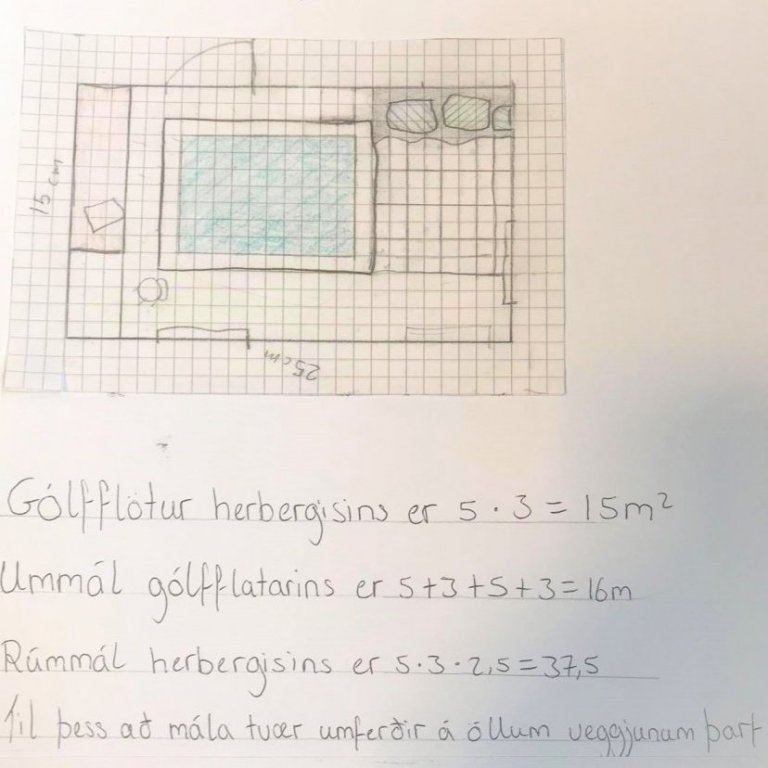 15 cm
25 cm
Gólfflötur herbergisins er 5 · 3 = 15m²
Ummál gólfflatarins er 5+3+5+3=16m
Rúmmál herbergisins er 5·3·2,5=37,5
Til þess að mála tvær umferðir á öllum veggjunam þarf